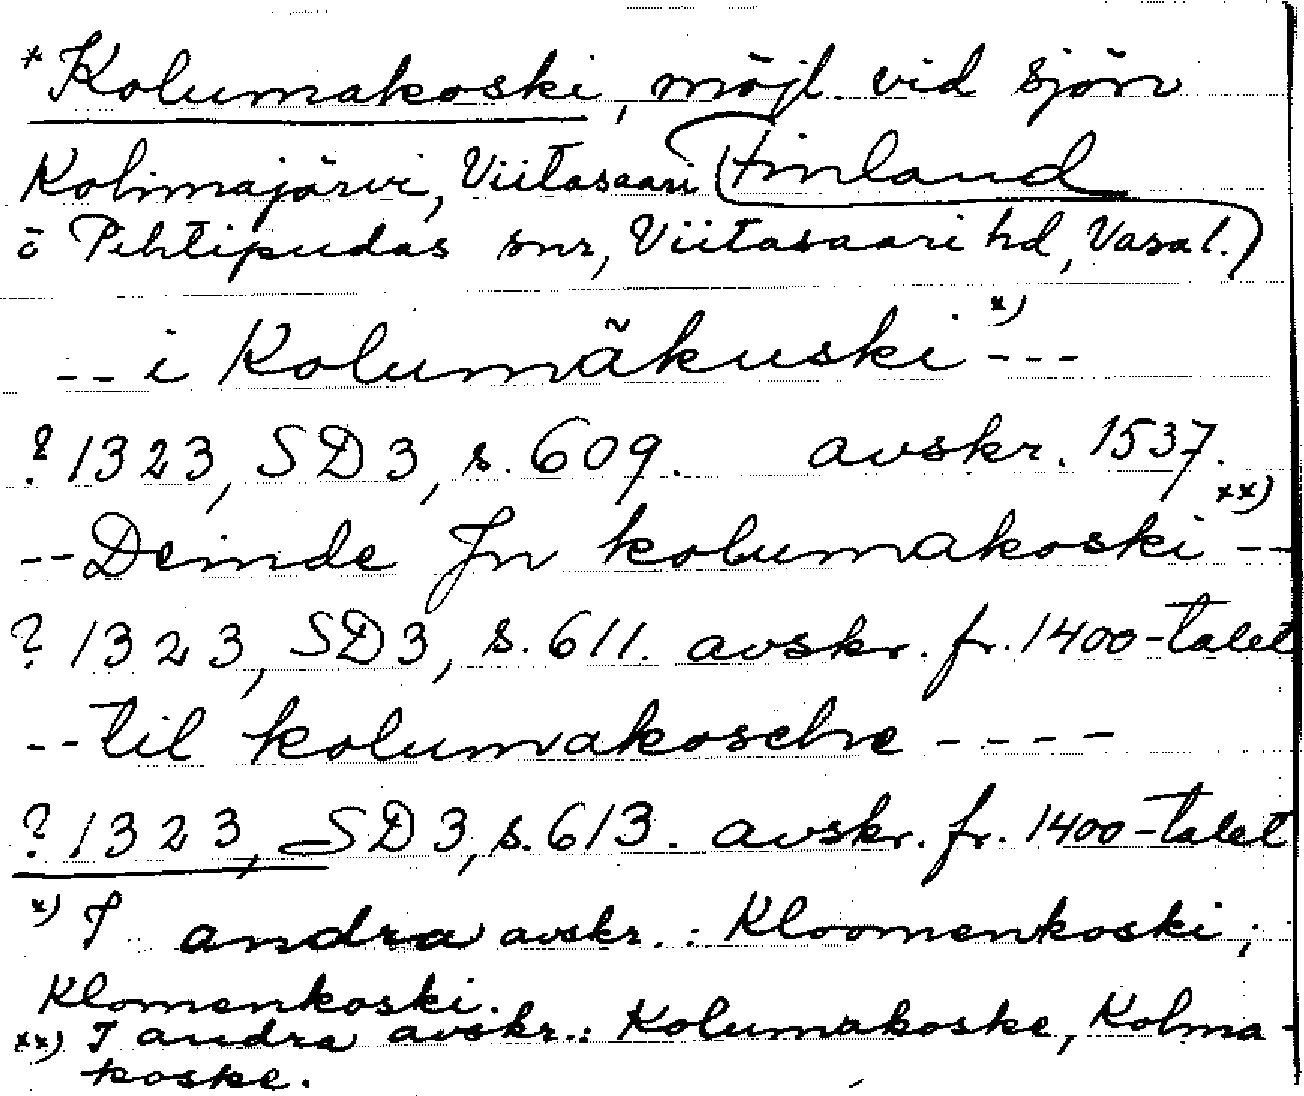 *Kolumakoski, möjl. vid sjön
Kolimajärvi, Viitasaari (Finland
o Pihtipudas snr, Viitasaari hd, Vasa l.)
-- i Kolumãkuski x) ---
? 1323, SD3, s. 609. avskr. 1537.
-- Deinde Jn kolumakoski xx) --
? 1323, SD3, s. 611. avskr. fr. 1400-talet
-- til kolumakosche ----
? 1323, SD3, s. 613. avskr. fr. 1400-talet
x) I andra avskr.: Kloomenkoski;
Klomenkoski.
xx) I andra avskr.: Kolumakoske, Kolma-
koske.